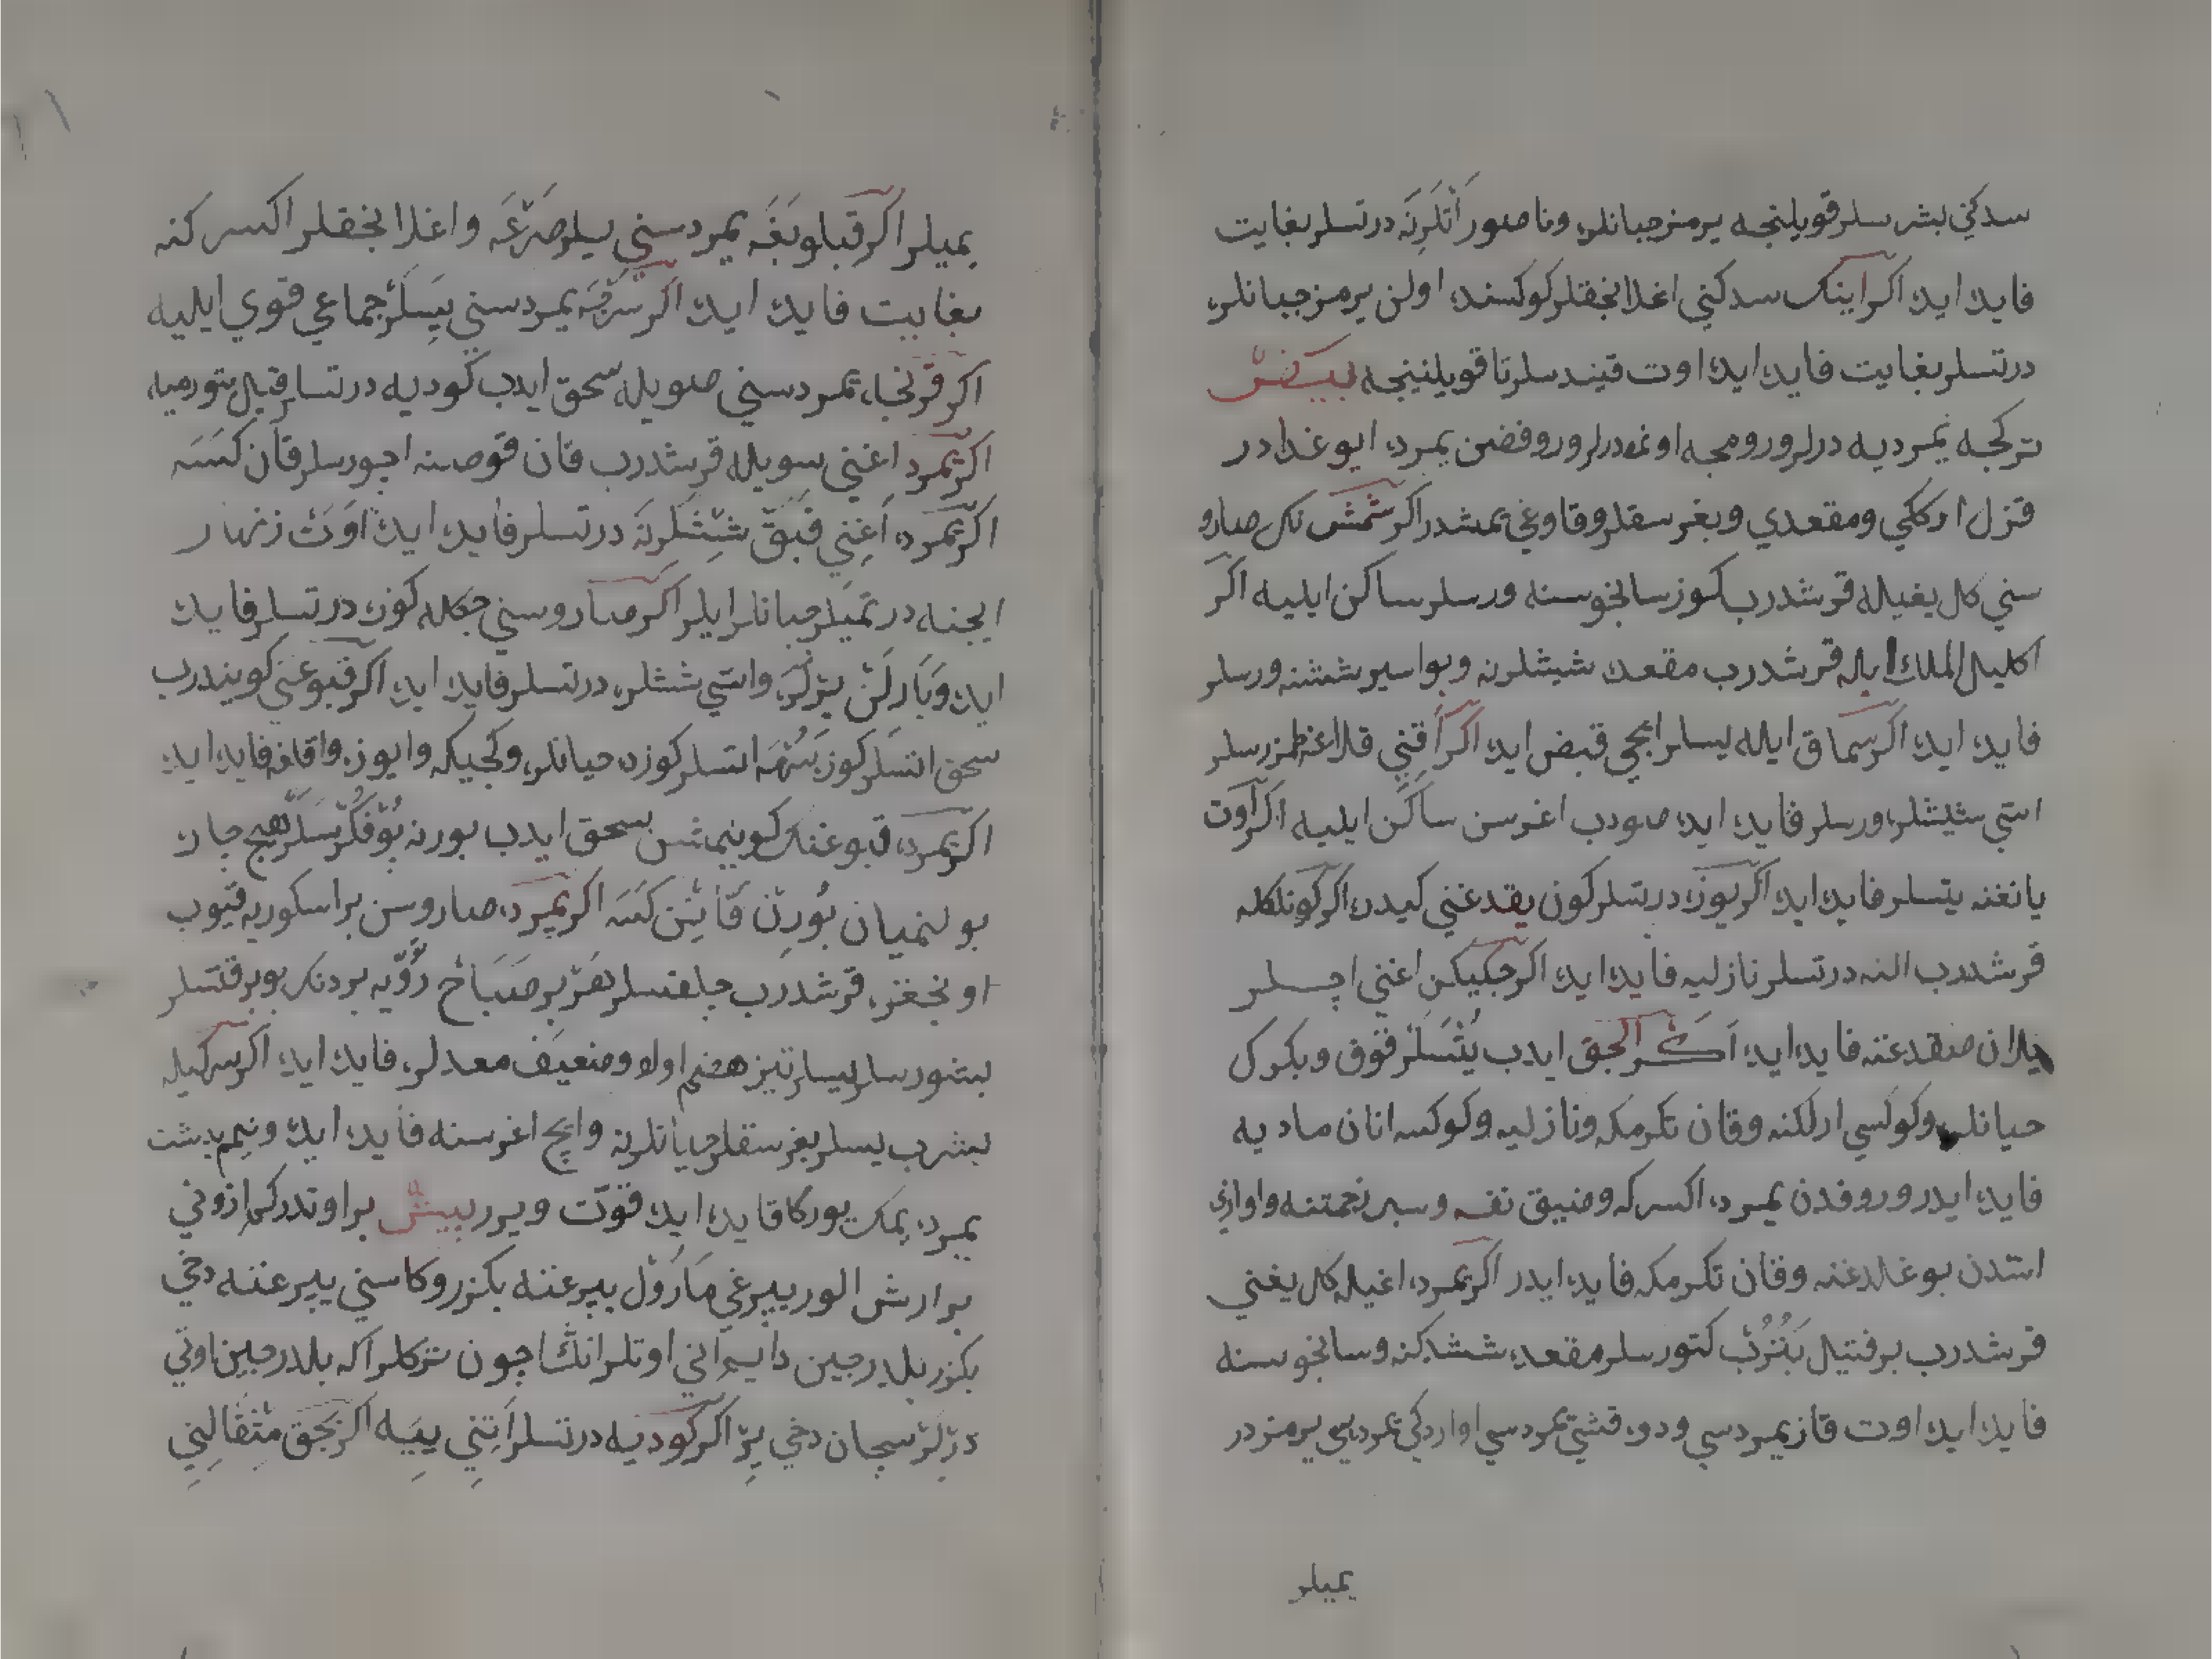 سدكني بشرسلر قويلنجه يرمز جبانلره وناصور اَتْلَرِنَه درتسلر بغايت
فايده ايده اكر اينك سدكني اغلانجقلر كوكسنده اولن يرمز جبانلره
درتسلر بغايت فايده ايده اوت قيندسلر تا قويلنينجه بيض
تركجه يمرديه درلر ورومجه اوغودرلر وروفضن يمرده ايو غدادر
قزل اركلكي ومقعدي وبغرسقلر وقاوغي يمشدر اكر شمش تك صارو
سني كل يغيله قرشدرب كوز سانجوسنه ورسلر ساكن ايليه اكر
اكليل الملك ايله قرشدرب مقعده شيشلرنه وبواسير ششنه ورسلر
فايده ايده اكر سماق ايله يسلر ايچي قبض ايده اكر اَقني قلاغنه طمزرسلر
استي شيشلره ورسلر فايده ايده صودب اغرسن ساكن ايليه اكر اوت
يانغنه يتسلر فايده ايده اكر يوزه درتسلر كون يقدغني كيدره اكر كونلكله
قرشدرب النه درتسلر نازليه فايده ايده اكر جكيكن اغني اچسلر
يلان صقدغنه فايده ايده اكر الجق ايدب يُتْسَلَرْ قوق وبكرك
حيانلره وكوكسي ارلكنه وقان تكرمكه ونازليه وكوكسه انان ماديه
فايده ايدر وروفدن يمرده اكسركه وضيق نفسه وسبر زحمتنه واوازي
استدن بوغلدغنه وقان تكرمكه فايده ايدر اكر يمرده اغيله كل يغني
قرشدرب بر فتيل بَتُرُبْ كتورسلر مقعده ششدكنه وسانجوسنه
فايده ايده اوت قاز يمردسي ودوه قشي يمردسي اواردكي يمردسي يرمزدر
يميلر
يميلر اكر قبلوبغه يمردسني يسلر صَرْعَه واغلانجقلر اكسركنه
بغايت فايده ايده اكر سرقه يمردسني يَسَلَرْ جماعي قوي ايليه
اكر قرنجه يمردسني صويله سحق ايدب كوديه درتسلر قيل بتورميه
اكر يمرده اغني سويله قرشدرب قان قوصنه اچورسلر قان كَسَه
اكر يمرده اَغِنِي قَبَقْ شِشْلَرنَه درتسلر فايده ايده اوت زنهار
ايچنه در تميلر جبانلر ايلر اكر صاروسني جكله كوزه درتسلر فايده
ايده وَبَارلَنْ يَرْلَرَه واستي ششلره درتسلر فايده ايده اكر قبوغني كويندرب
سحق اتسلر كوز بَنْهَه اتسلر كوزده حيانلره وكجيكه وايوزه واقلغه فايده ايده
اكر يمرده قبوغنك كوينمشن سحق ايدب بورنه پُوفْكُرْسَلَر هيچ چاره
بولنميان بُورِنْ قَانِنْ كَسَه اكر يمرده صاروسن بر اسكوريه قيوب
اونجغزه قرشدرب چلقسلر هَرْ بر صَبَاح رُوّيه بر دنك بوبر قتسلر
بشورسلر يسلر تيز هضم اوله وضعيف معدلره فايده ايده اكر سركيله
بشرب يسلر بغرسقلر حيانلرنه وايچ اغرسنه فايده ايده ونيم بشت
يمرده يمك يوركا فايده ايده قوّت ويرر بيش بر اوتدر كه ازوني
بر ارش الور يپرغي مَارُوْل يپرغنه بكزر وكاسني يپرغنه دخي
بكزر بلدرجين دايم اني اوتلر انك اچون تركلر اكه بلدرجين اوتي
دِرْلَرْ سچان دخي يِرْ اكر كوديه درتسلر اَتِنِي يِيَيه اكر بَجَق مِثْقَالِنِي